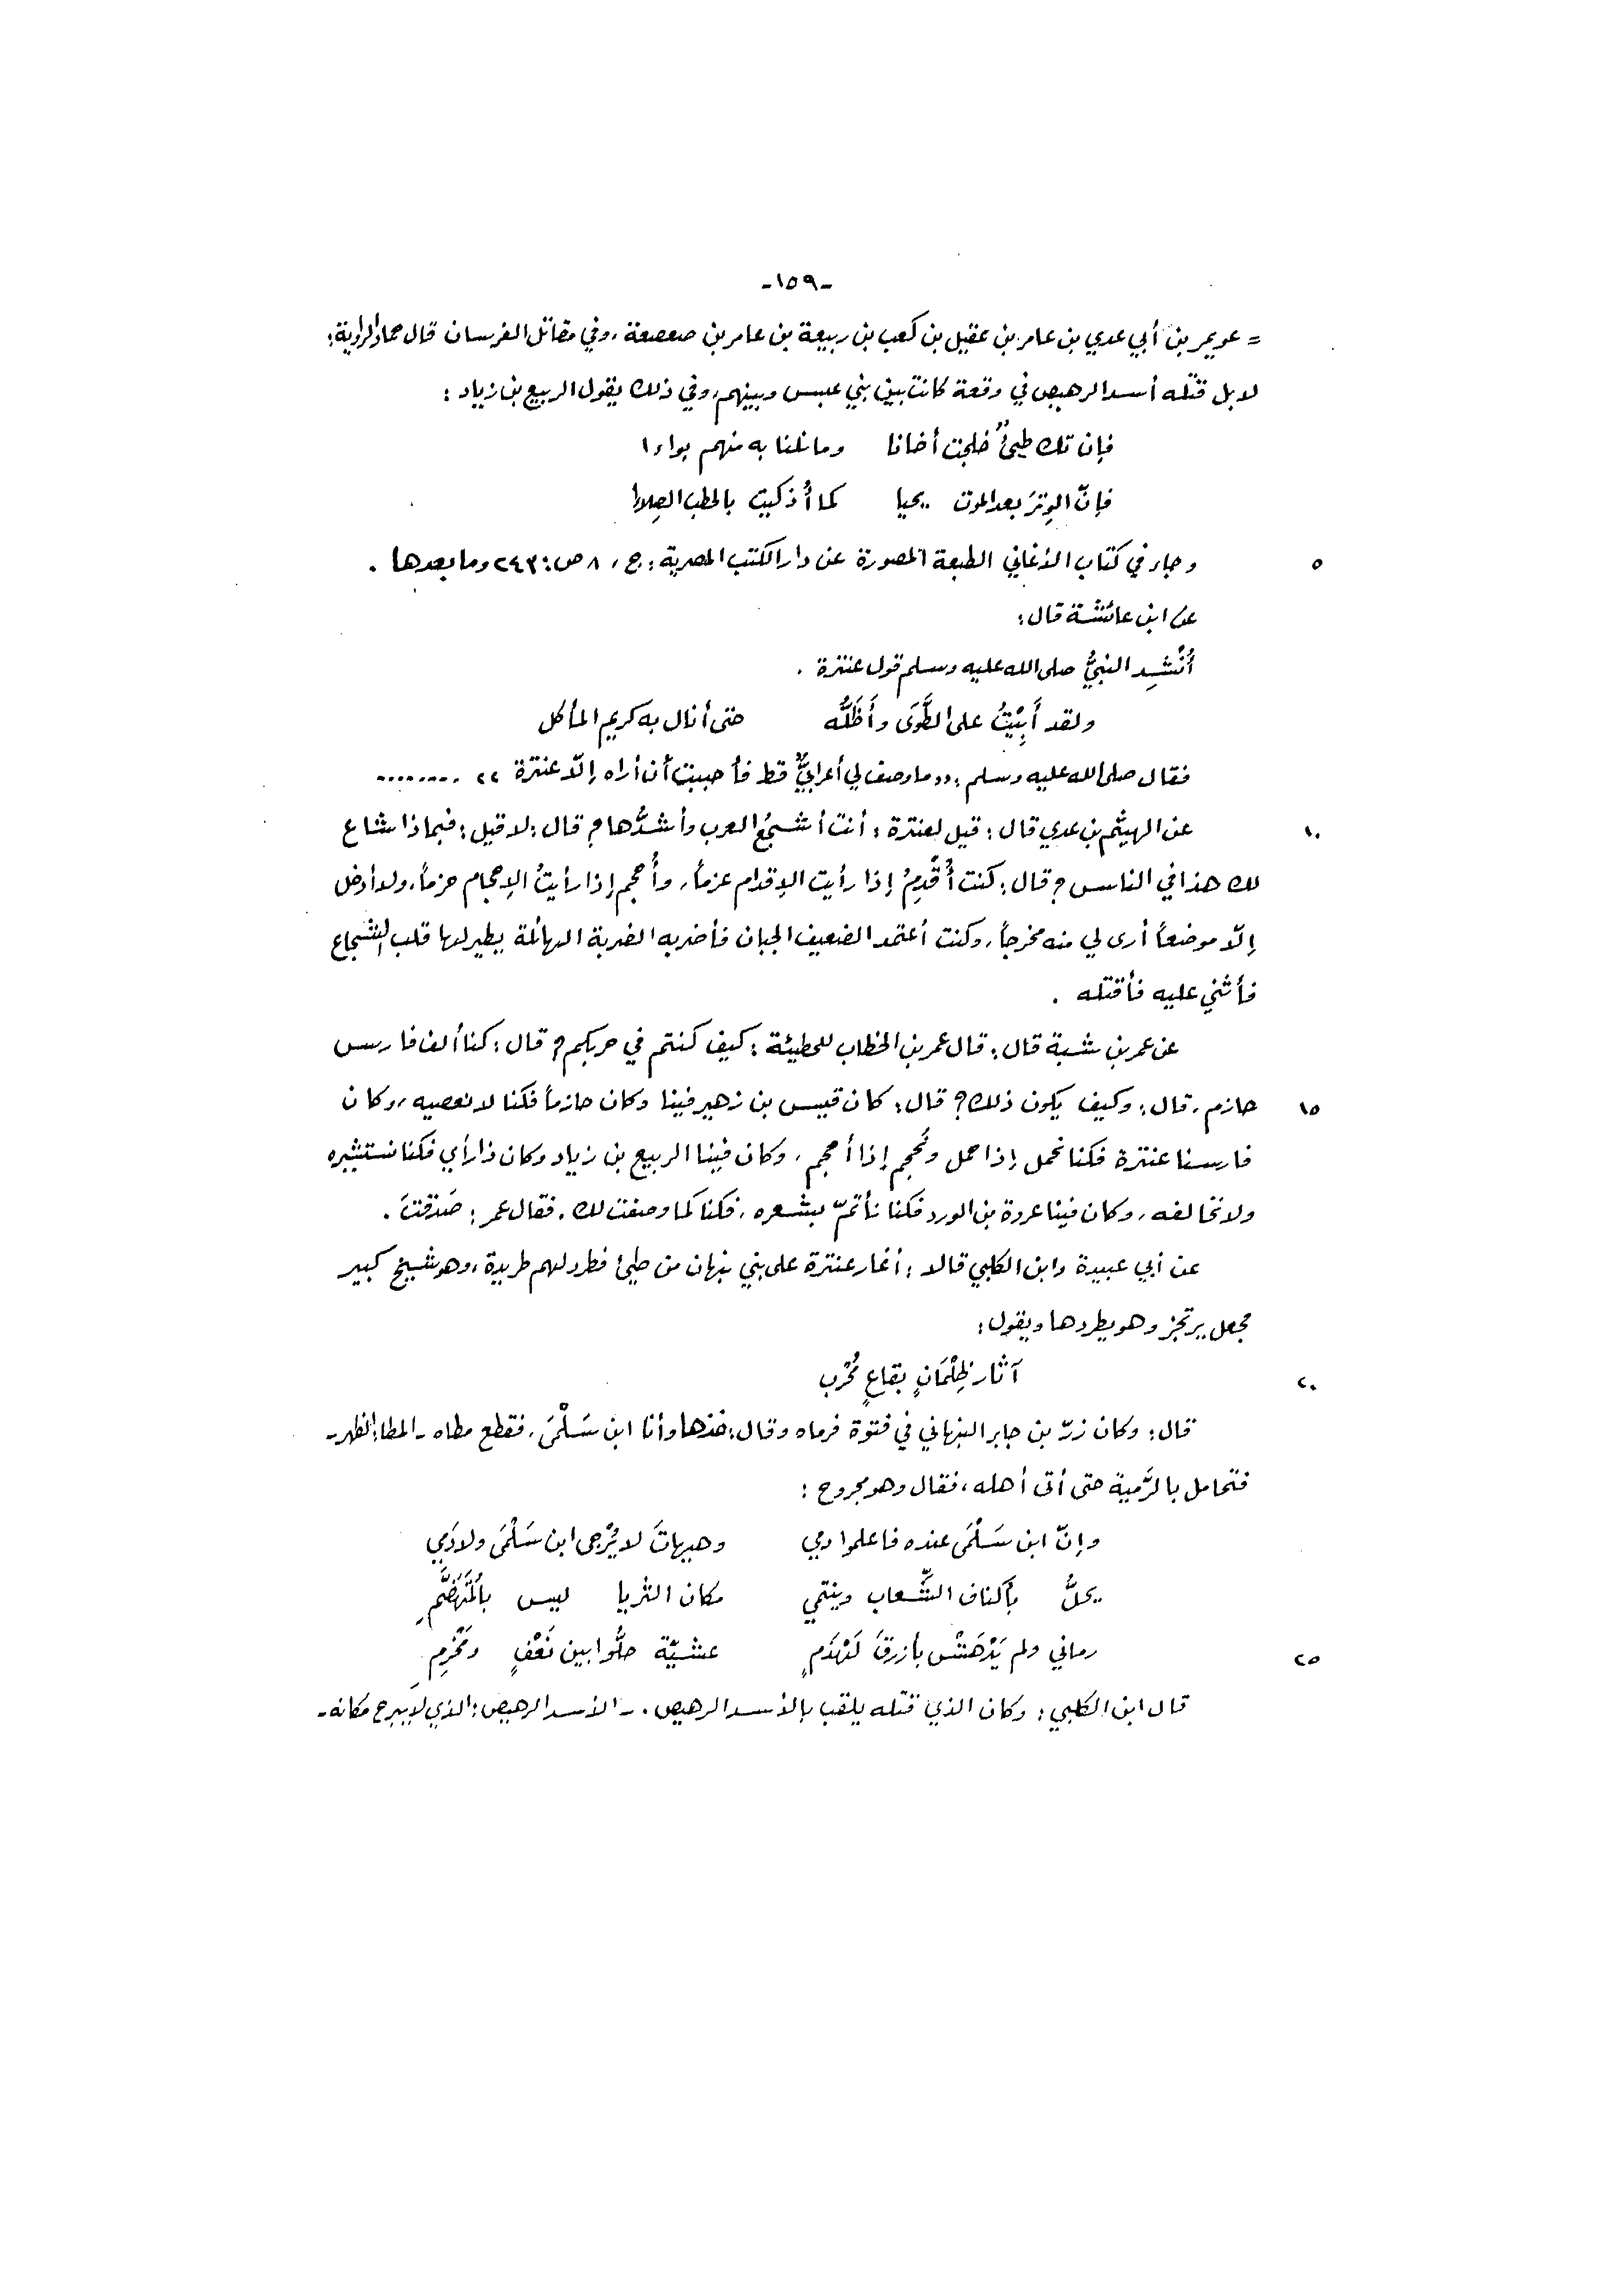 -١٥٩-
= عويمر بن أبي عدي بن عامر بن عقيل بن كعب بن ربيعة بن عامر بن صعصعة، وفي مقاتل الفرسان قال حماد الراوية:
لا بل قتله أسد الرهيص في وقعة كانت بين بني عبس وبينهم، وفي ذلك يقول الربيع بن زياد :
فإن تك طيئٌ خلجت أخانا وما نلنا به منهم بواءا
فإنّ الوِترَ بعد الموت يحيا كما أُذكيت بالحطب الصِلاءا
٥ وجاء في كتاب الأغاني الطبعة المصورة عن دار الكتب المصرية: ج، ٨ ص: ٢٤٣ وما بعدها .
عن ابن عائشة قال:
أُنْشِد النبيُّ صلى الله عليه وسلم قول عنترة .
ولقد أَبِيْتُ على الطَّوَى وأَظَلُّه حتى أنال به كريم المأكل
فقال صلى الله عليه وسلم: «ما وصف لي أعرابيٌّ قط فأحببت أن أراه إلّا عنترة» ........
١٠ عن الهيثم بن عدي قال: قيل لعنترة: أنت أشجعُ العرب وأشدُّها؟ قال: لا قيل: فبماذا شاع
لك هذا في الناس؟ قال: كنت أُقْدِمُ إذا رأيت الإقدام عزماً، وأُحجم إذا رأيتُ الإحجام حزماً، ولا أدخل
إلّا موضعاً أرى لي منه مخرجاً، وكنت أعتمد الضعيف الجبان فأضربه الضربة الهائلة يطير لها قلب الشجاع
فأثني عليه فأقتله .
عن عمر بن شبة قال: قال عمر بن الخطاب للحطيئة: كيف كنتم في حربكم؟ قال: كنا ألف فارس
١٥ حازم، قال: وكيف يكون ذلك؟ قال: كان قيس بن زهير فينا وكان حازماً فكنا لا نعصيه، وكان
فارسنا عنترة فكنا نحمل إذا حمل ونُحجم إذا أحجم، وكان فينا الربيع بن زياد وكان ذا رأي فكنا نستشيره
ولا نخالفه، وكان فينا عروة بن الورد فكنا نأتمّ بشعره، فكنا كما وصفت لك، فقال عمر: صَدقتَ .
عن أبي عبيدة وابن الكلبي قالا: أغار عنترة على بني نبهان من طيئ فطرد لهم طريدة، وهو شيخ كبير
فجعل يرتجز وهو يطردها ويقول:
٢٠ آثار ظِلْمَانٍ بقاعٍ مُحْرِب
قال: وكان زرّ بن جابر النبهاني في فتوة فرماه وقال: خذها وأنا ابن سَلْمَى، فقطع مطاه ـ المطا: الظهر ـ
فتحامل بالرَّمية حتى أتى أهله، فقال وهو مجروح :
وإنّ ابن سَلْمَى عنده فاعلموا دمي وهيهاتَ لا يُرْجى ابن سَلْمَى ولا دَمِي
يحلُّ بأكناف الشِّعاب وينتمي مكان الثريا ليس بالمُتَهَضَّمِ
٢٥ رماني ولم يَدْهَشْ بأزرقَ لَهْذَمٍ عشيّة حلُّوا بين نَعْفٍ ومَخْرِمِ
قال ابن الكلبي: وكان الذي قتله يلقب بالأسد الرهيص. ـ الأسد الرهيص: الذي لا يبرح مكانه ـ